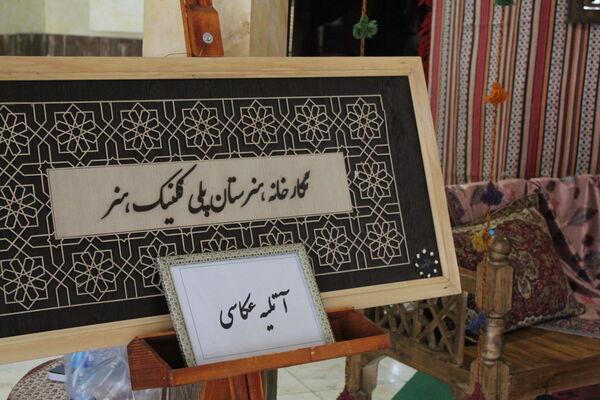 نگارخانه هنرستان پلی کلینیک هنر
آتلیه عکاسی